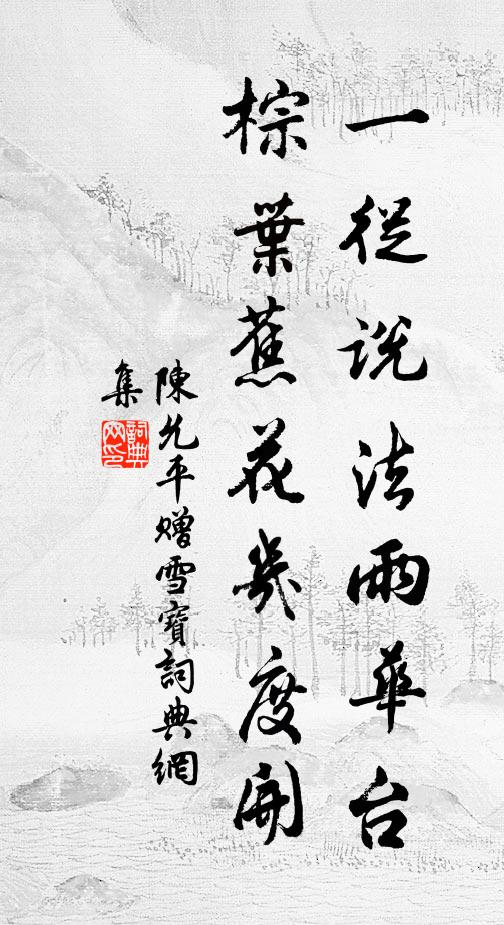 一從説法雨華台
棕葉蕉花幾度開
陳允平贈雪寶詞典網
集
詞典網印